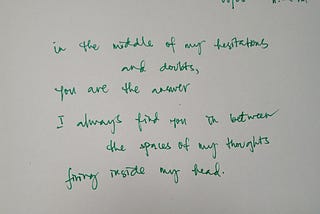 in the middle of my hesitations
and doubts,
you are the answer
I always find you in between
the spaces of my thoughts
firing inside my head.